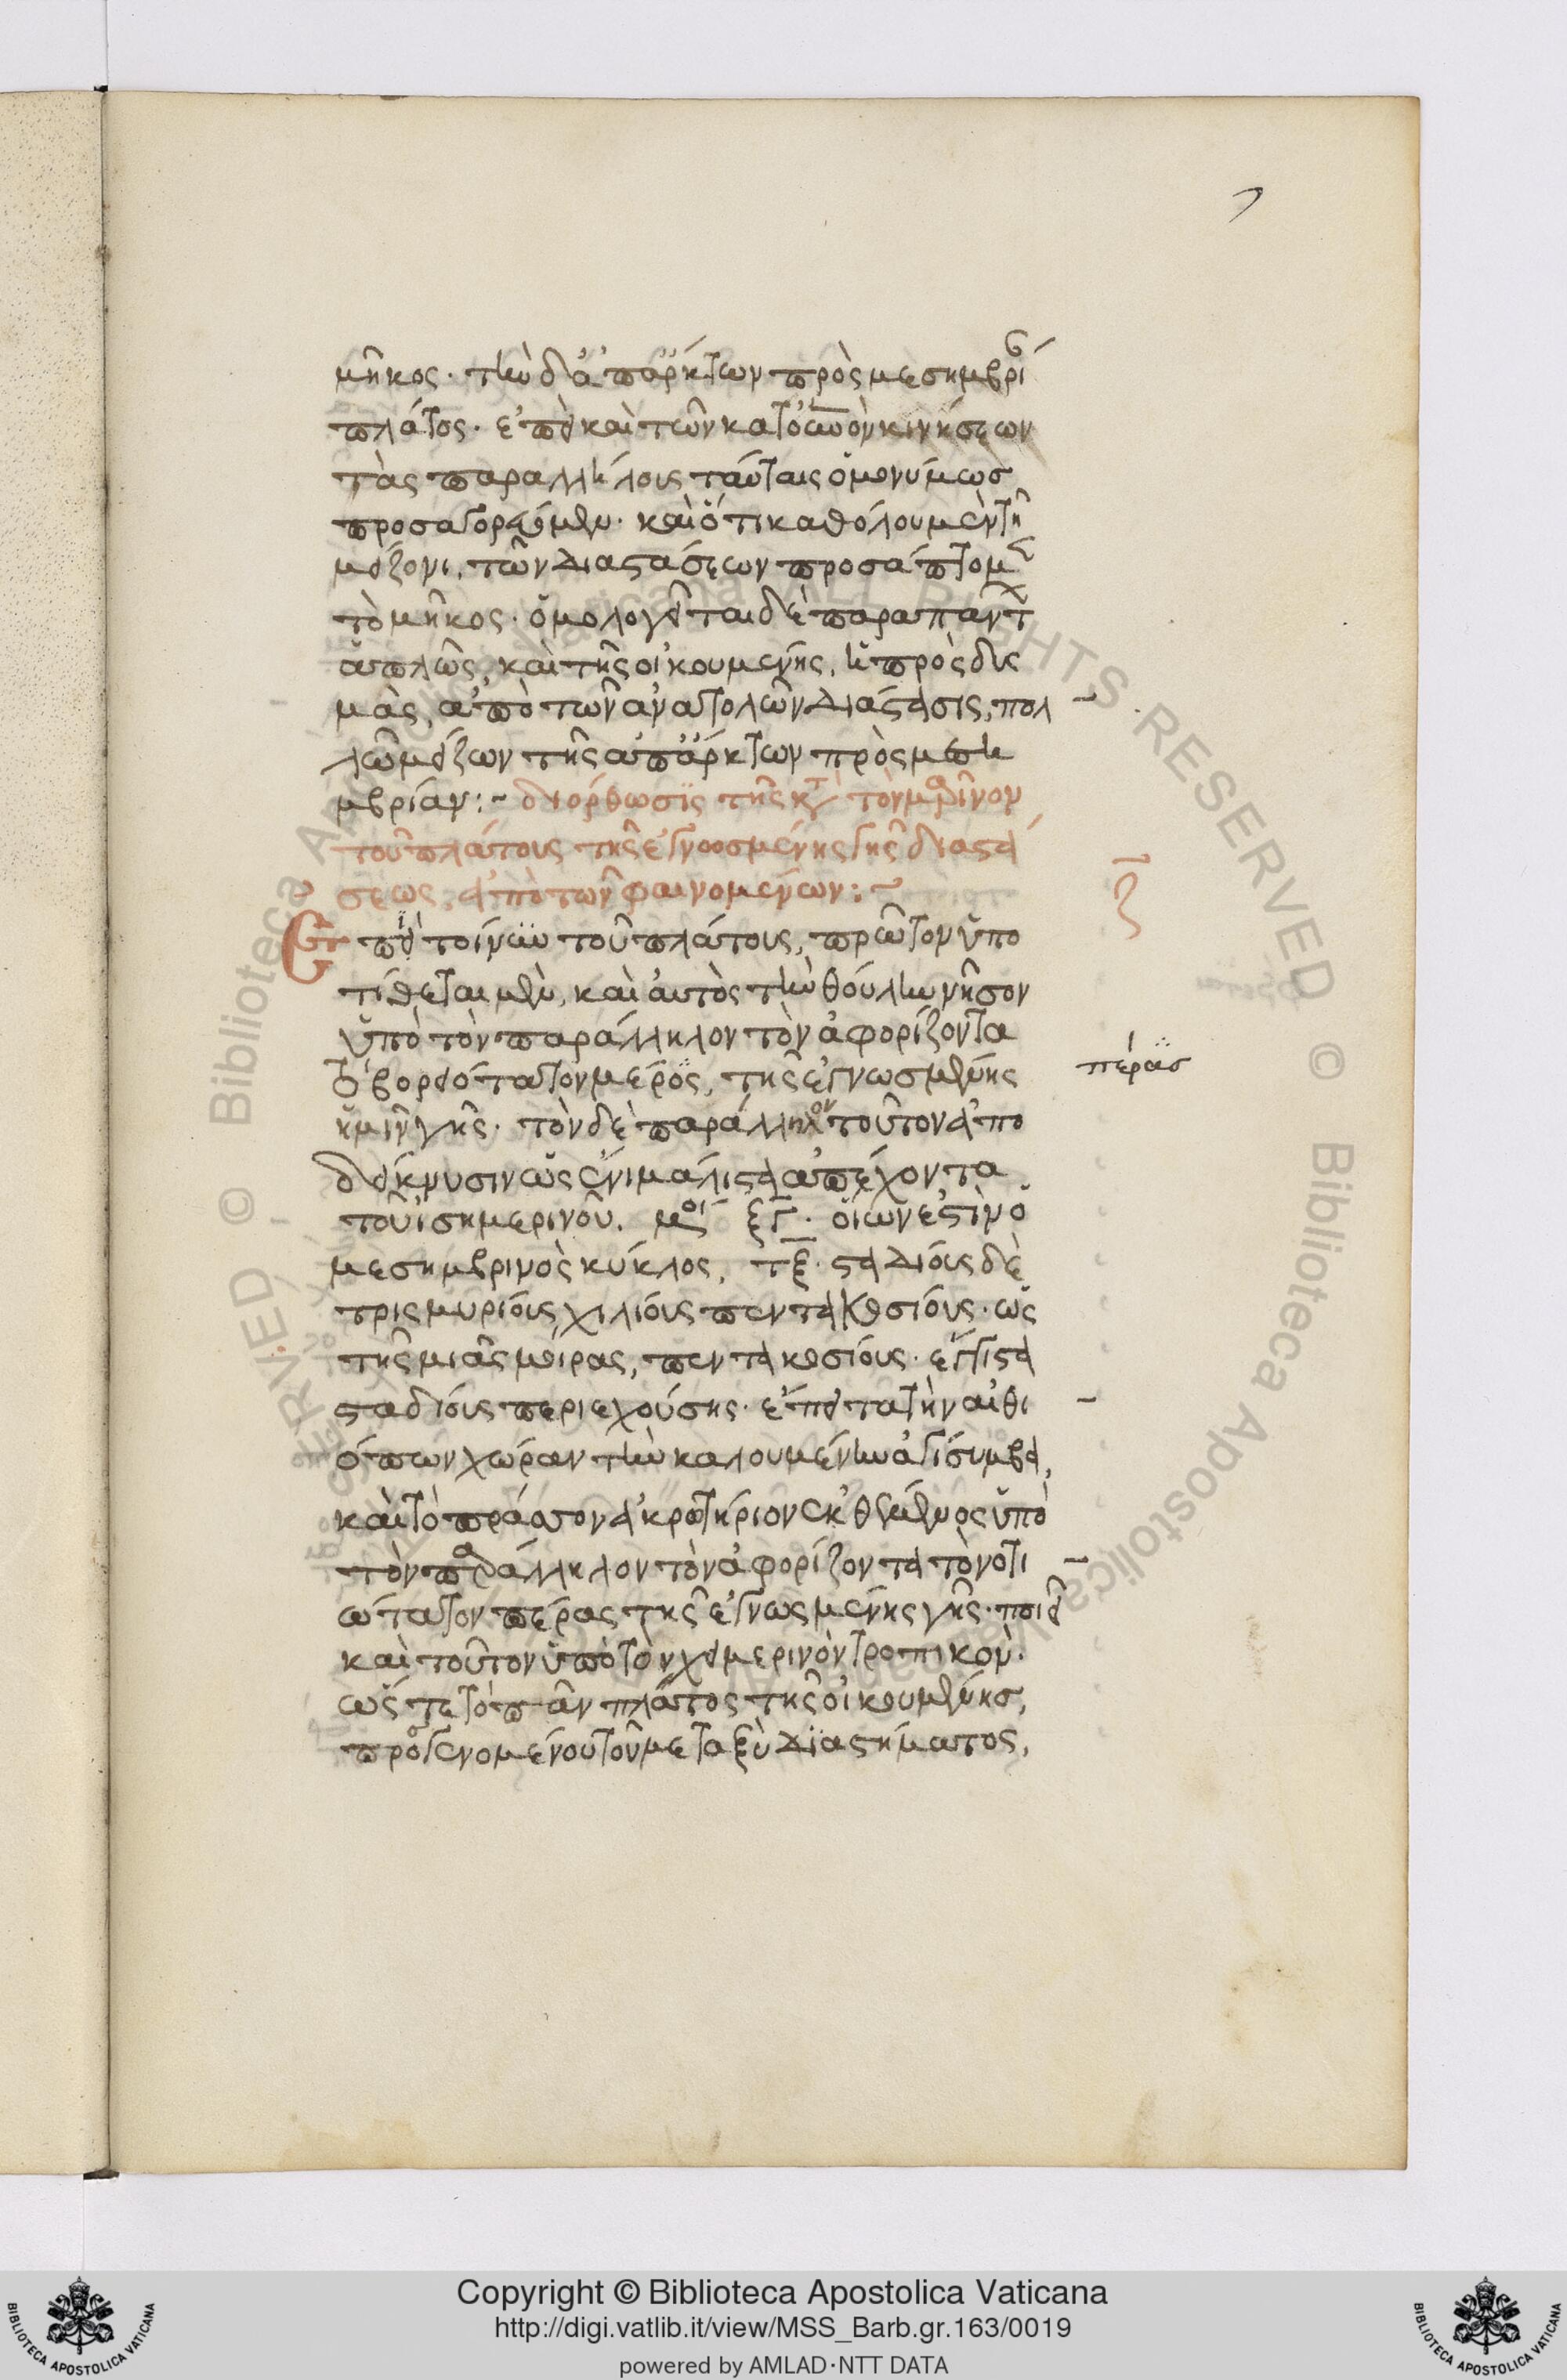 7
μῆκος. τὴν δ' ἀπ' ἄρκτων πρὸς μεσημβρί
πλάτος. ἐπεὶ καὶ τῶν κατ' οὐρανὸν κινήσεων
τὰς παραλλήλους ταύταις ὁμονύμως
προσαγορεύομεν. καὶ ὅτι καθόλου μὲν τῇ
μείζονι, τῶν διαστάσεων προσάπτομεν
τὸ μῆκος. ὁμολογεῖται δὲ παρὰ πάντων
ἁπλῶς, καὶ τῆς οἰκουμένης, ἡ πρὸς δυς
μὰς, ἀπὸ τῶν ἀνατολῶν διάστασις, πολ
λῷ μείζων τῆς ἀπ' ἄρκτων πρὸς μεση
μβρίαν:~ διόρθωσις τῆς κατὰ τὸν μαρῖνον
τοῦ πλάτους τῆς ἐγνωσμένης γῆς διαστά
σεως, ἀπὸ τῶν φαινομένων:~
ζ
Ἐπὶ τοίνυν τοῦ πλάτους, πρῶτον ὑπο
τίθεται μὲν, καὶ αὐτὸς τὴν θούλην νῆσον
ὑπὸ τὸν παράλληλον τὸν ἀφορίζοντα
τὸ βορειότατον μέρος, τῆς ἐγνωσμένης
πέρας
ἡμῖν γῆς. τὸν δὲ παράλληλον τοῦτον ἀπο
δείκνυσιν ὡς ἔνι μάλιστα ἀπέχοντα
τοῦ ἰσημερινοῦ. μοι ξγ. οἵων ἐστὶν ὁ
μεσημβρινὸς κύκλος, τξ. σταδίους δὲ
τρισμυρίους χιλίους πεντακοσίους. ὡς
τῆς μιᾶς μοίρας, πεντακοσίους. ἔγγιστα
σταδίους περιεχούσης. ἔπειτα τὴν αἰθι
όπων χώραν τὴν καλουμένην ἀγίσυμβα,
καὶ τὸ πράσον ἀκρωτήριον ἐκθέμενος ὑπὸ
τὸν παράλληλον τὸν ἀφορίζοντα τὸ νοτι
ώτατον πέρας τῆς ἐγνωσμένης γῆς. ποιεῖ
καὶ τοῦτον ὑπὸ τὸν χειμερινὸν τροπικὸν.
ὥστε τὸ πᾶν πλάτος τῆς οἰκουμένης,
προσγενομένου τοῦ μεταξὺ διαστήματος,
Copyright © Biblioteca Apostolica Vaticana
http://digi.vatlib.it/view/MSS_Barb.gr.163/0019
powered by AMLAD·NTT DATA